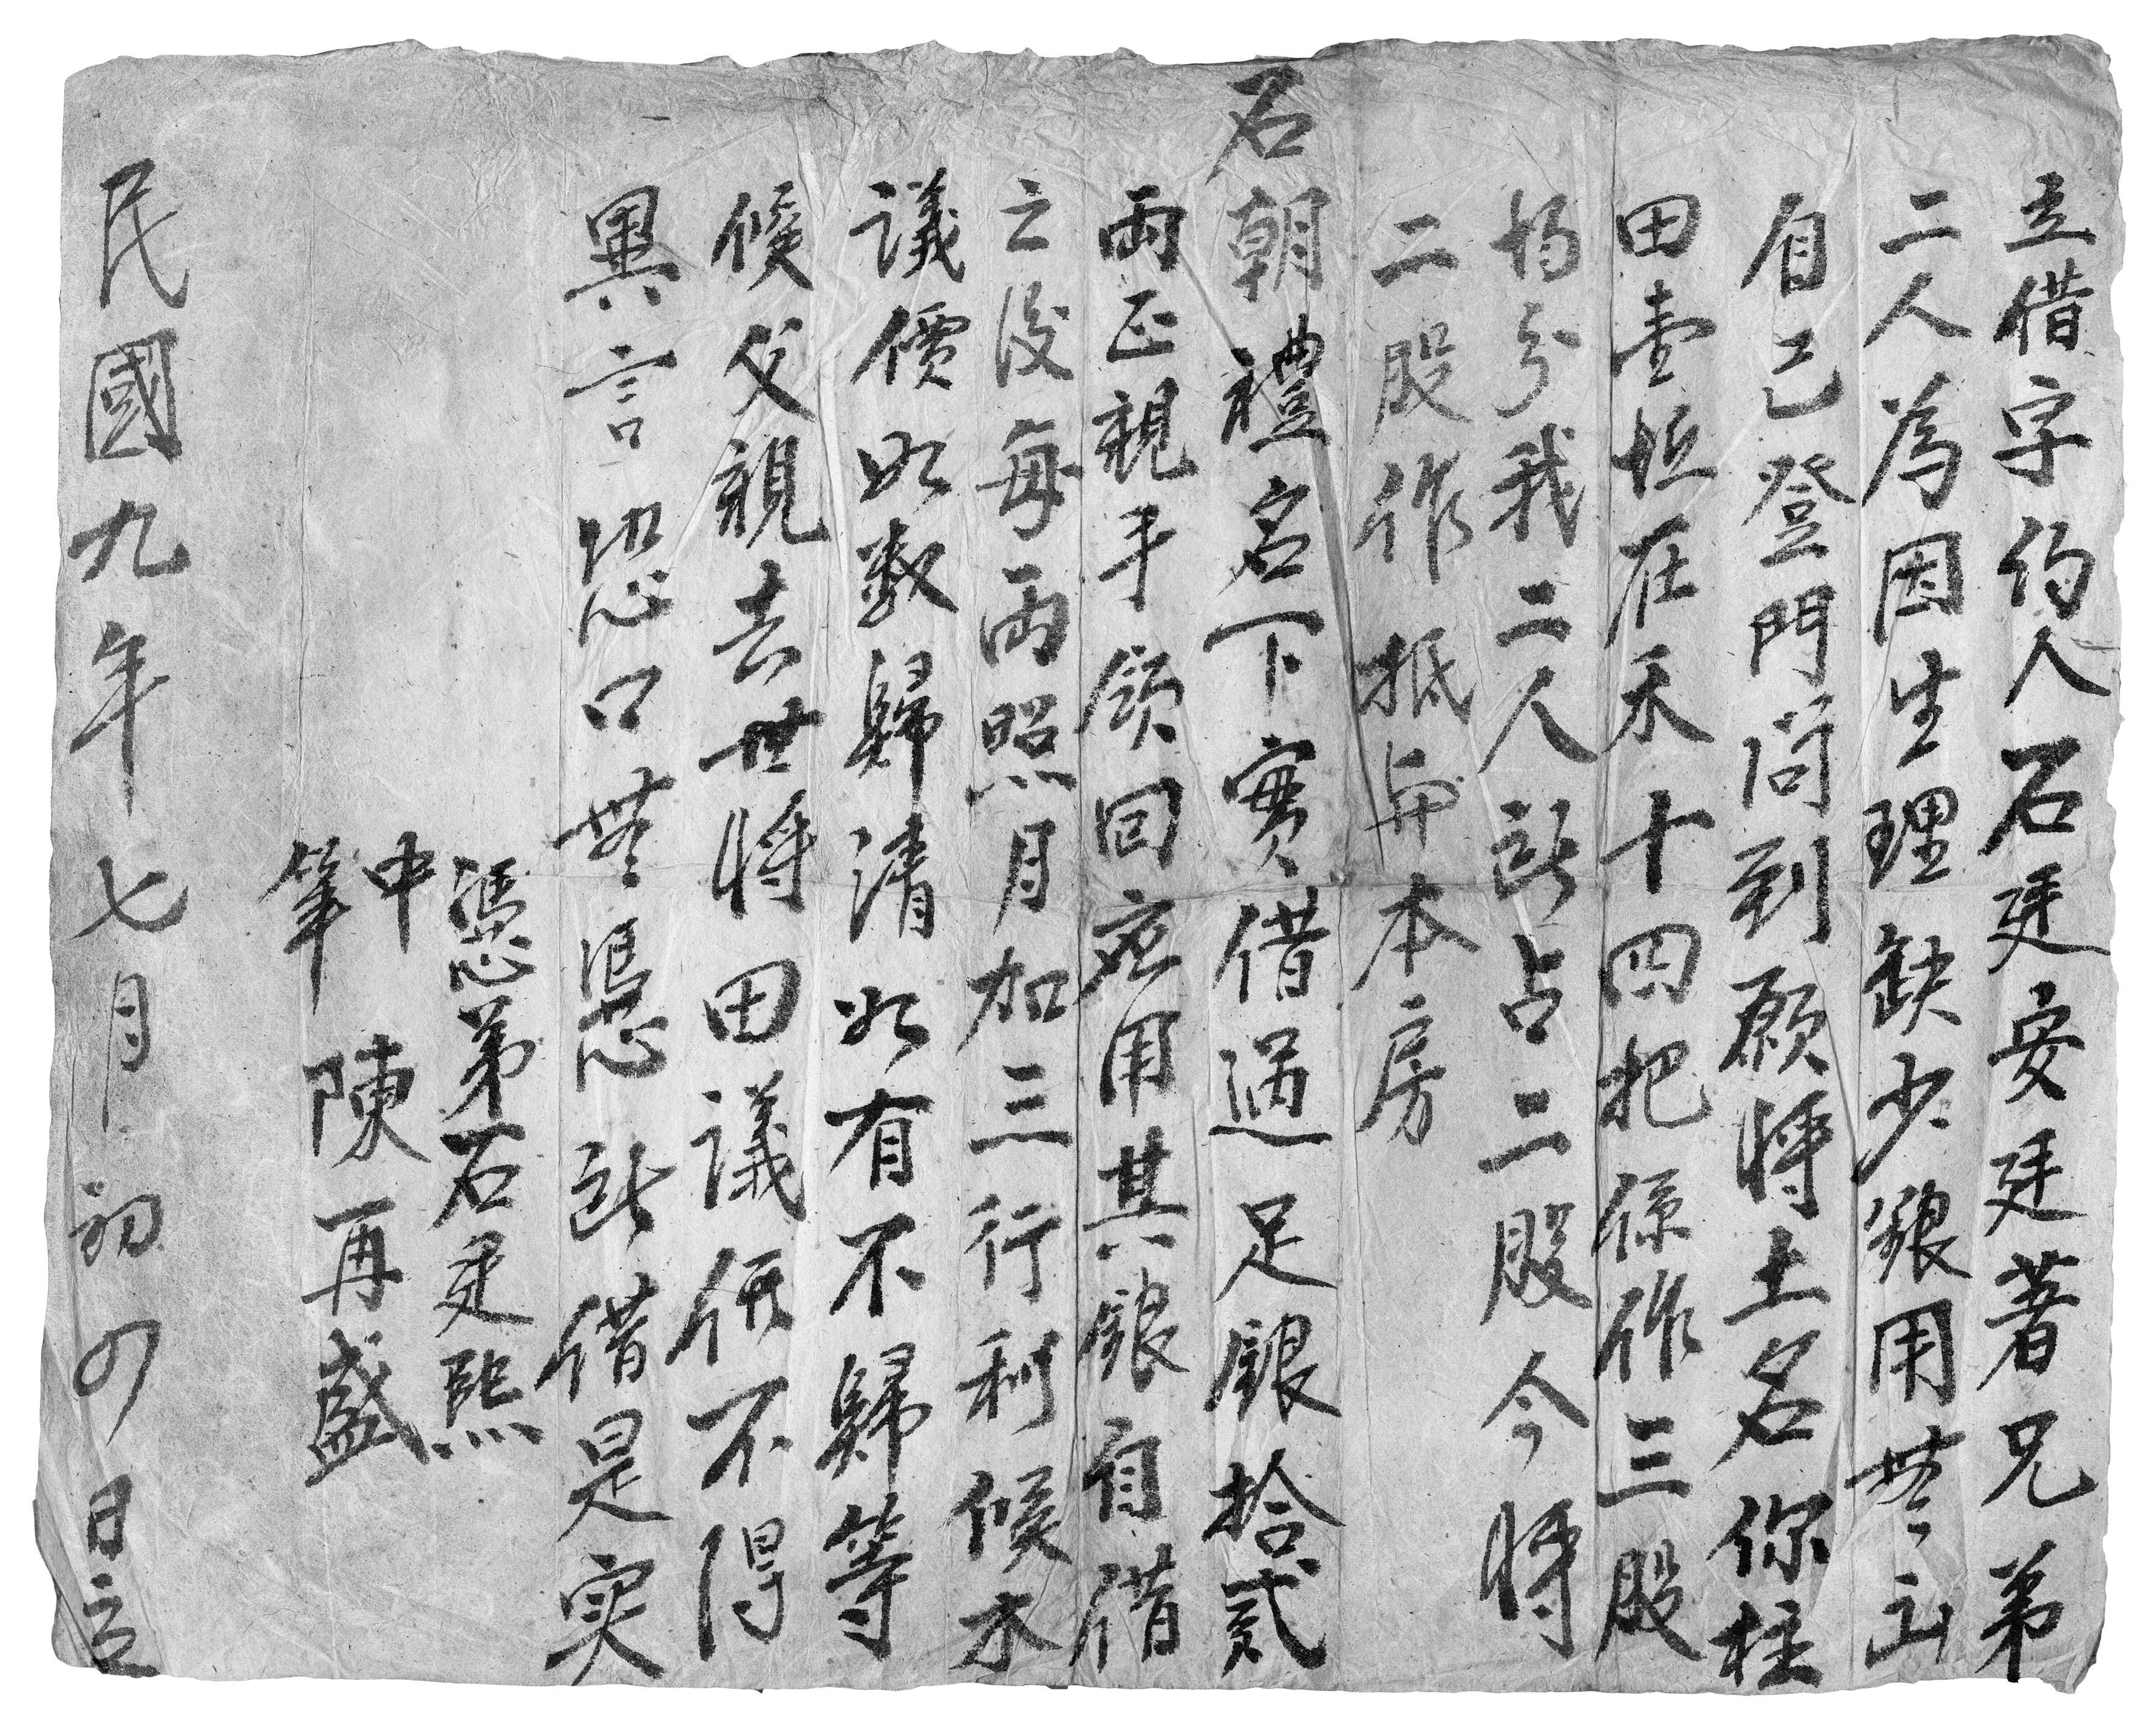 立借字約人石廷安廷著兄弟
二人為因生理缺少銀用無出
自己登門问到願將土名你柱
田壹坵在禾十四把係作三股
均分我二人訴占二股今將
二股作抵與本房
石朝禮名下實借過足銀拾貳
兩正親手領囘應用其銀自借
之後每兩照月加三行利候木
議價如数歸清如有不歸等
候父親去世將田議価不得
異言恐口無憑訴借是实
憑弟石廷熙
中
筆 陳再盛
民國九年七月初四日立